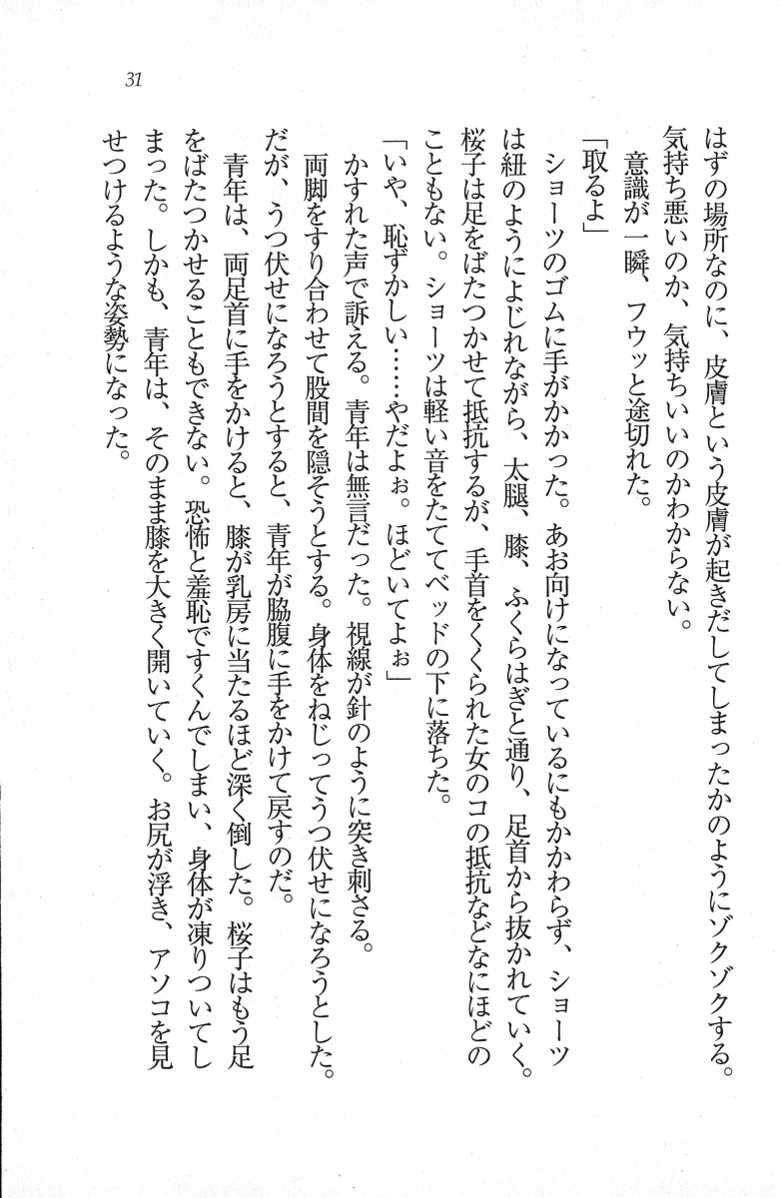 31
はずの場所なのに、皮膚という皮膚が起きだしてしまったかのようにゾクゾクする。
気持ち悪いのか、気持ちいいのかわからない。
意識が一瞬、フウッと途切れた。
「取るよ」
ショーツのゴムに手がかかった。あお向けになっているにもかかわらず、ショーツ
は紐のようによじれながら、太腿、膝、ふくらはぎと通り、足首から抜かれていく。
桜子は足をばたつかせて抵抗するが、手首をくくられた女のコの抵抗などなにほどの
こともない。ショーツは軽い音をたててベッドの下に落ちた。
「いや、恥ずかしい……やだよぉ。ほどいてよぉ」
かすれた声で訴える。青年は無言だった。視線が針のように突き刺さる。
両脚をすり合わせて股間を隠そうとする。身体をねじってうつ伏せになろうとした。
だが、うつ伏せになろうとすると、青年が脇腹に手をかけて戻すのだ。
青年は、両足首に手をかけると、膝が乳房に当たるほど深く倒した。桜子はもう足
をばたつかせることもできない。恐怖と羞恥ですくんでしまい、身体が凍りついてし
まった。しかも、青年は、そのまま膝を大きく開いていく。お尻が浮き、アソコを見
せつけるような姿勢になった。